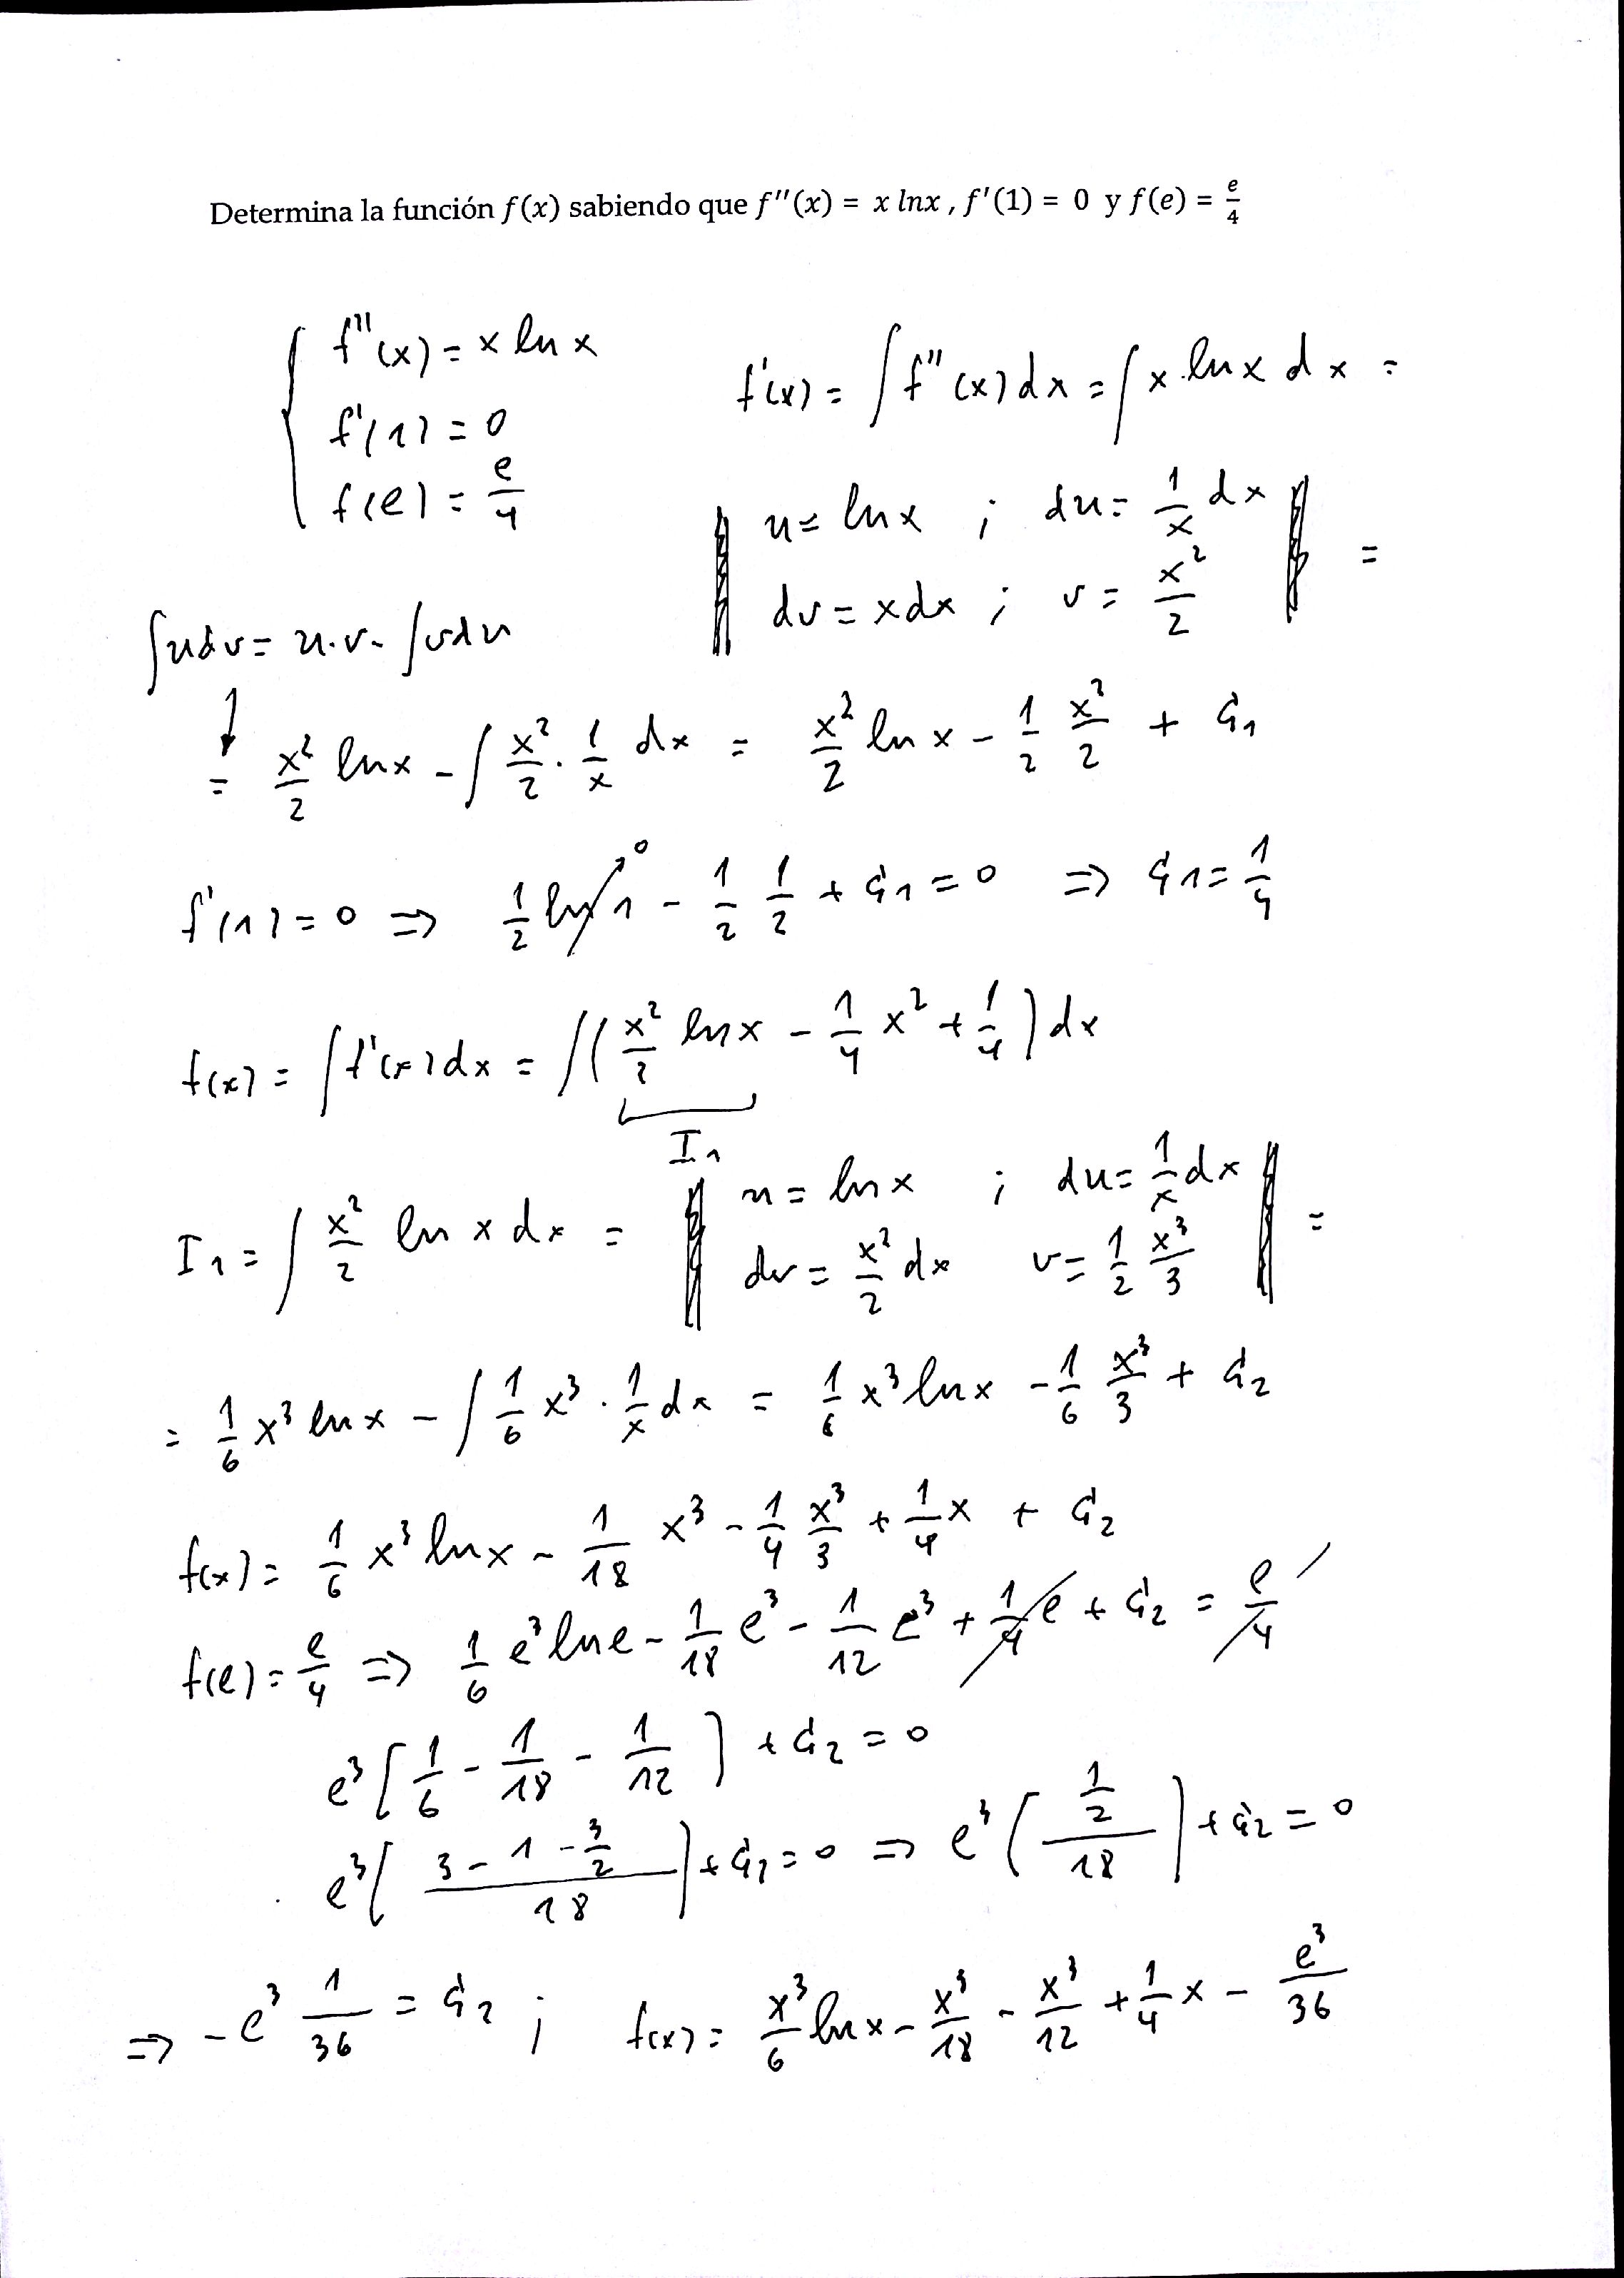 Determina la función f(x) sabiendo que f''(x) = x lnx , f'(1) = 0 y f(e) = e/4
f''(x) = x ln x
f'(1) = 0
f(e) = e/4
f'(x) = ∫ f''(x) dx = ∫ x · ln x dx =
u = ln x ; du = 1/x dx
dv = x dx ; v = x²/2 =
∫ u dv = u·v - ∫ v du
= x²/2 ln x - ∫ x²/2 · 1/x dx = x²/2 ln x - 1/2 x²/2 + C₁
f'(1) = 0 ⇒ 1/2 ln 1 ↗0 - 1/2 1/2 + C₁ = 0 ⇒ C₁ = 1/4
f(x) = ∫ f'(x) dx = ∫ (x²/2 ln x - 1/4 x² + 1/4) dx
I₁
I₁ = ∫ x²/2 ln x dx =
u = ln x ; du = 1/x dx
dv = x²/2 dx v = 1/2 x³/3 =
= 1/6 x³ ln x - ∫ 1/6 x³ · 1/x dx = 1/6 x³ ln x - 1/6 x³/3 + C₂
f(x) = 1/6 x³ ln x - 1/18 x³ - 1/4 x³/3 + 1/4 x + C₂
f(e) = e/4 ⇒ 1/6 e³ ln e - 1/18 e³ - 1/12 e³ + 1/4 e + C₂ = e/4
e³ [1/6 - 1/18 - 1/12] + C₂ = 0
e³ [(3 - 1 - 3/2)/18] + C₂ = 0 ⇒ e³ ((1/2)/18) + C₂ = 0
⇒ - e³ 1/36 = C₂ ; f(x) = x³/6 ln x - x³/18 - x³/12 + 1/4 x - e³/36